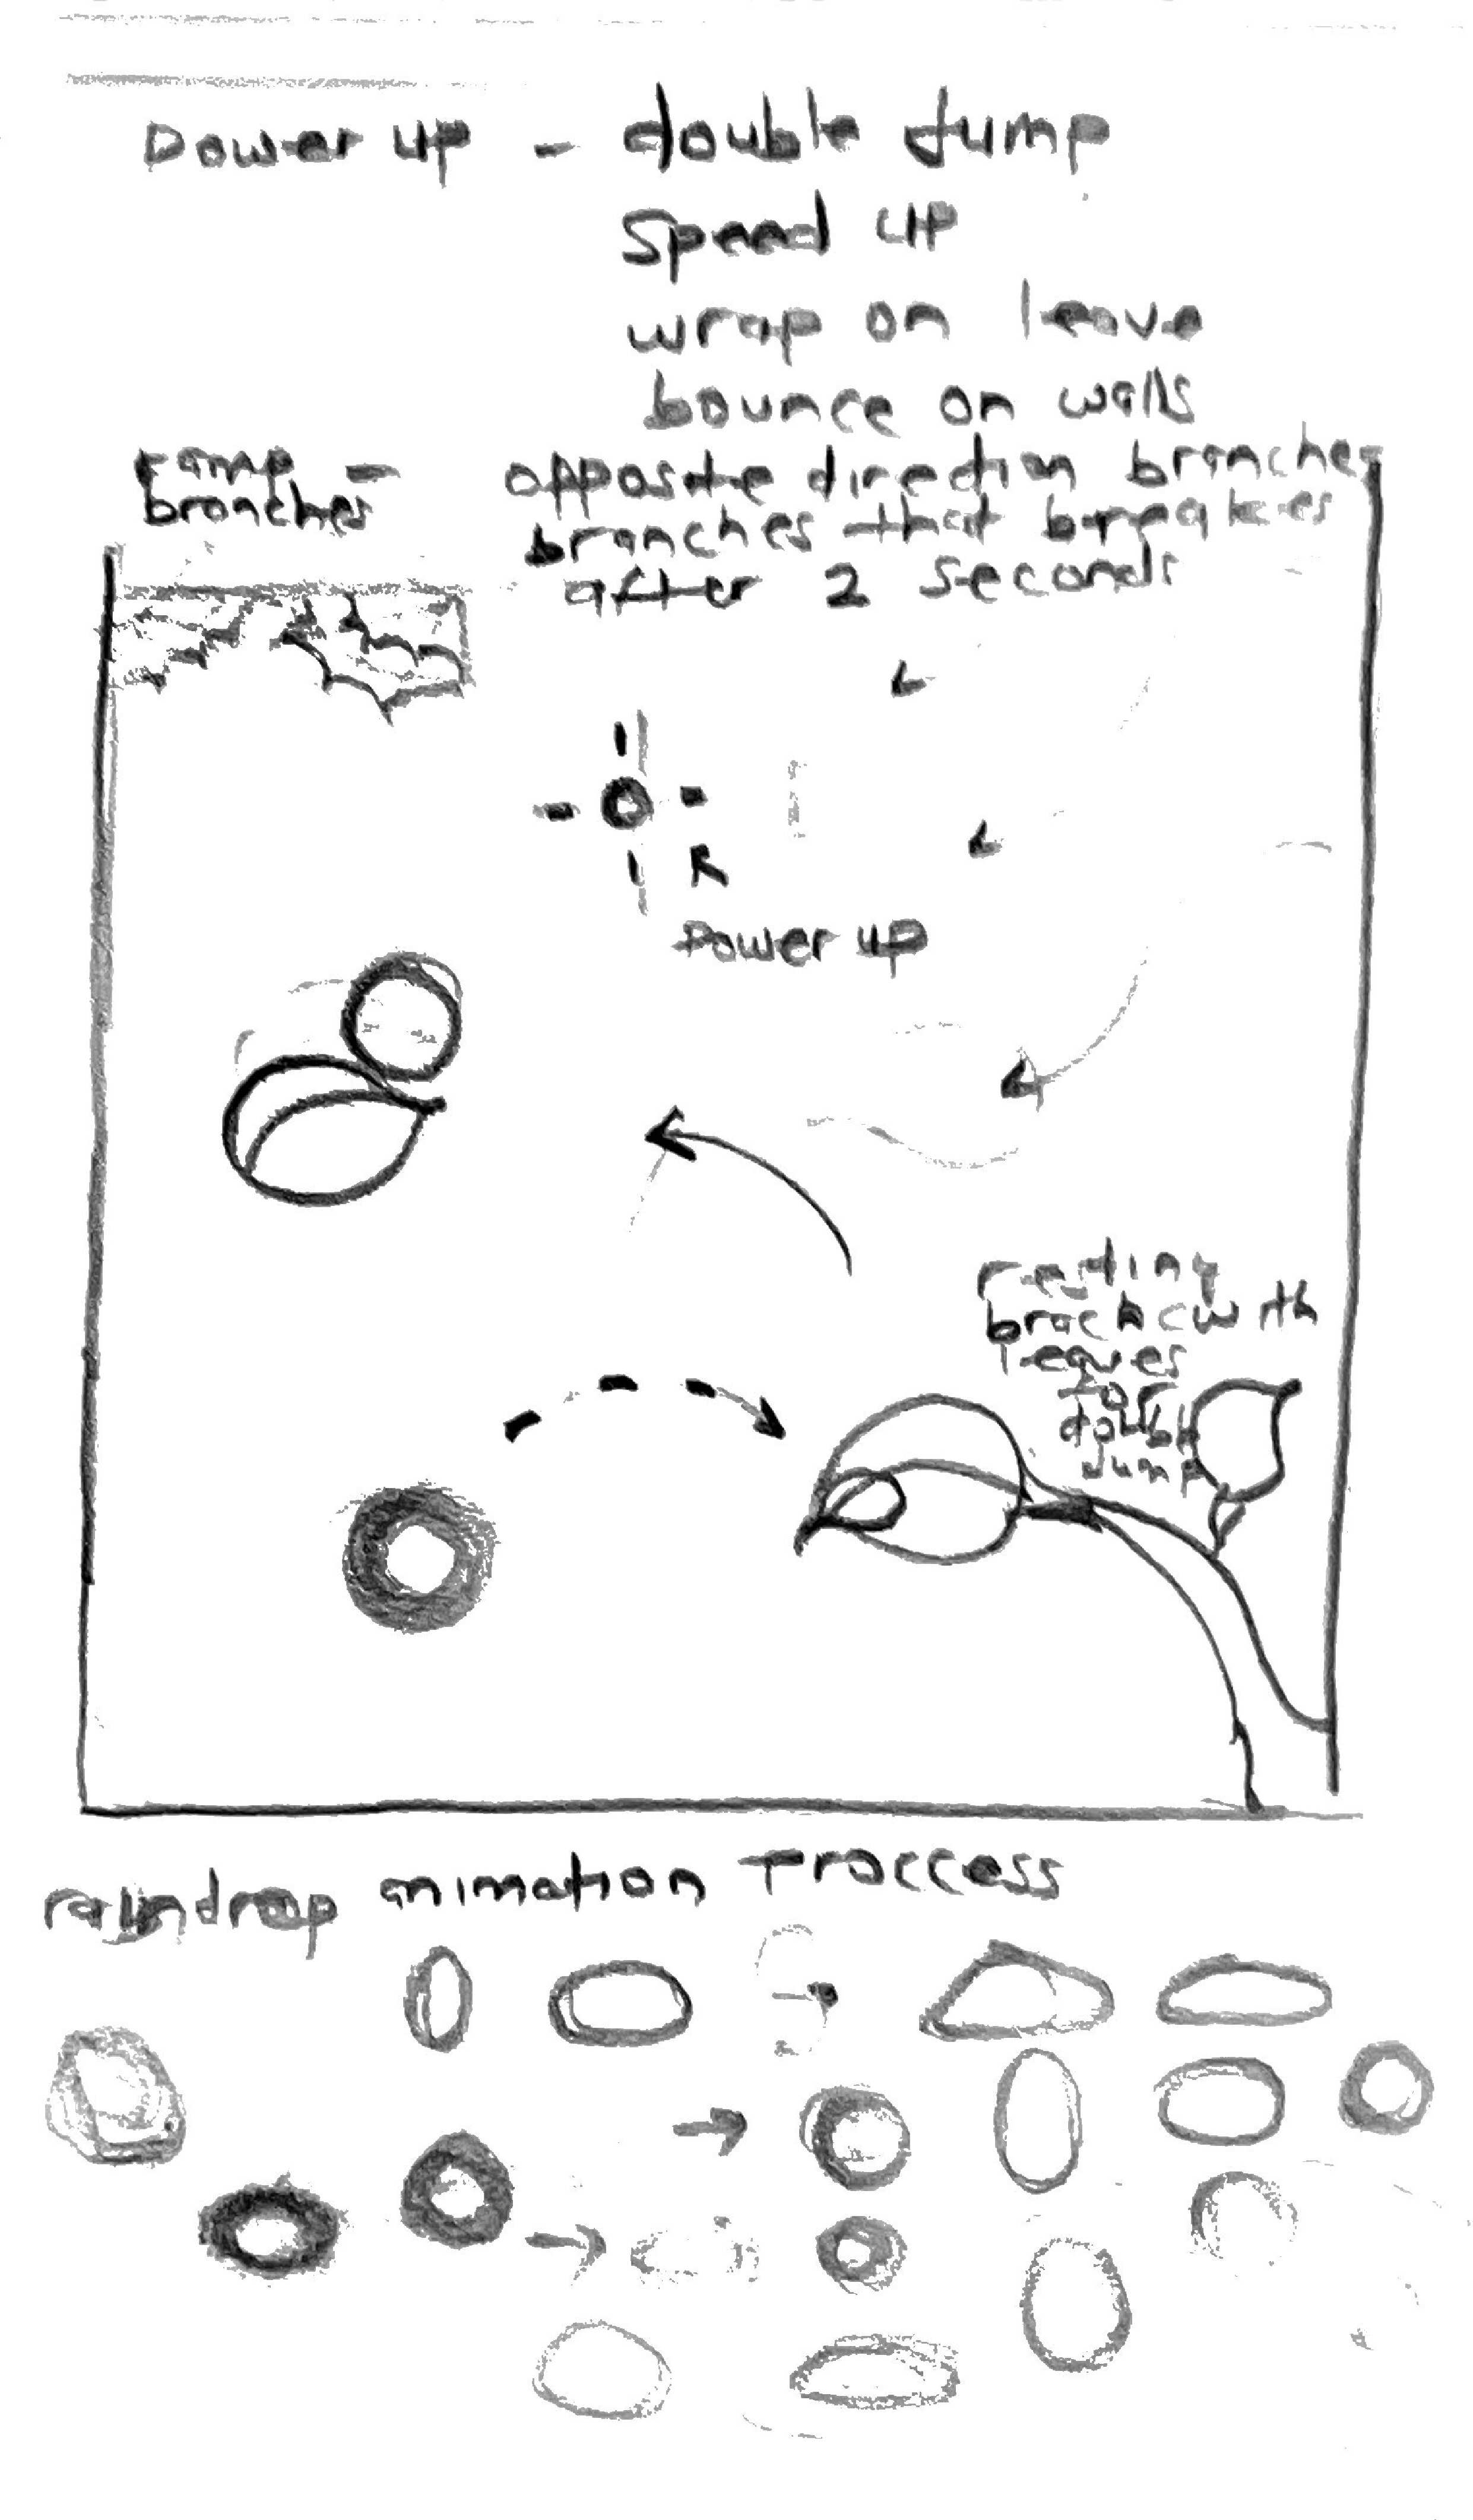 Power up - double Jump
Speed up
wrap on leave
bounce on walls
ramp - opposite direction branches
branches branches that breakes
after 2 seconds
Power up
resting
brach with
leaves
for
double
Jump
raindrop animation Proccess